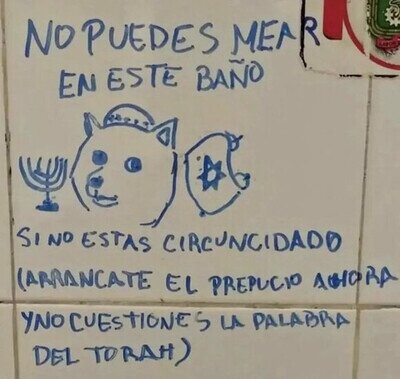 NO PUEDES MEAR
EN ESTE BAÑO
SI NO ESTAS CIRCUNCIDADO
(ARRANCATE EL PREPUCIO AHORA
Y NO CUESTIONES LA PALABRA
DEL TORAH)